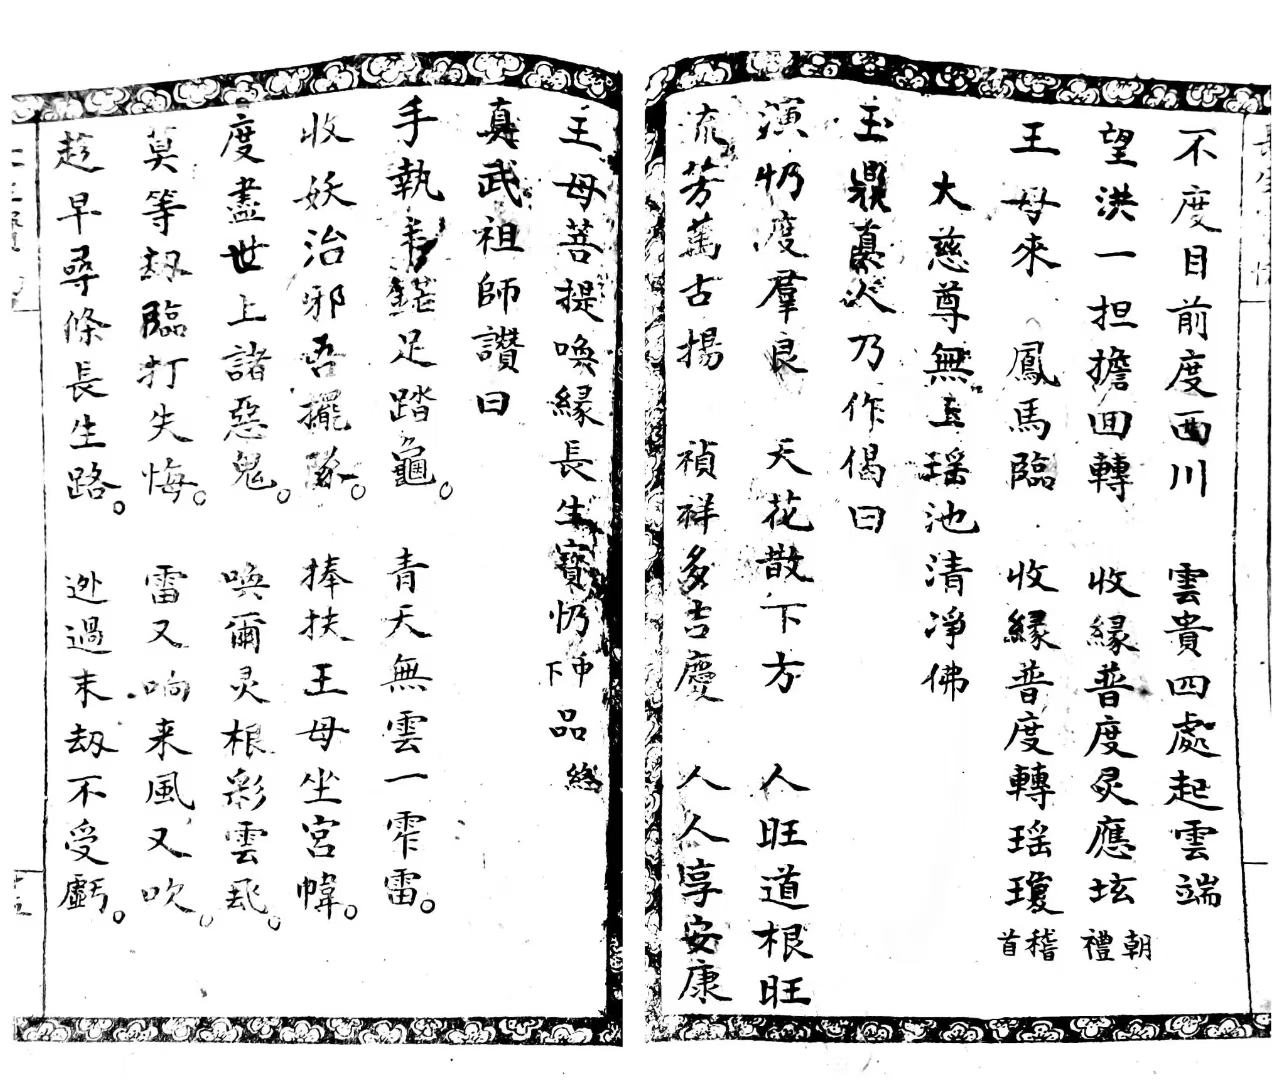 不度目前度西川　雲貴四處起雲端
望洪一担擔回轉　收緣普度灵應坛　朝禮
王母來　鳳馬臨　收緣普度轉瑶瓊　稽首
大慈尊無上瑶池清凈佛
玉鼎真人乃作偈曰
演忉度羣良　天花散下方　人旺道根旺
流芳萬古揚　禎祥多吉慶　人人享安康
王母菩提喚緣長生寶忉下品終
真武祖師讃曰
手執足踏龜。青天無雲一雫雷。
收妖治邪吾擺隊。捧扶王母坐宮幃。
度盡世上諸惡鬼。喚爾灵根彩雲飛。
莫等刼臨打失悔。雷又响来風又吹。
趁早尋條長生路。迯過末刼不受虧。